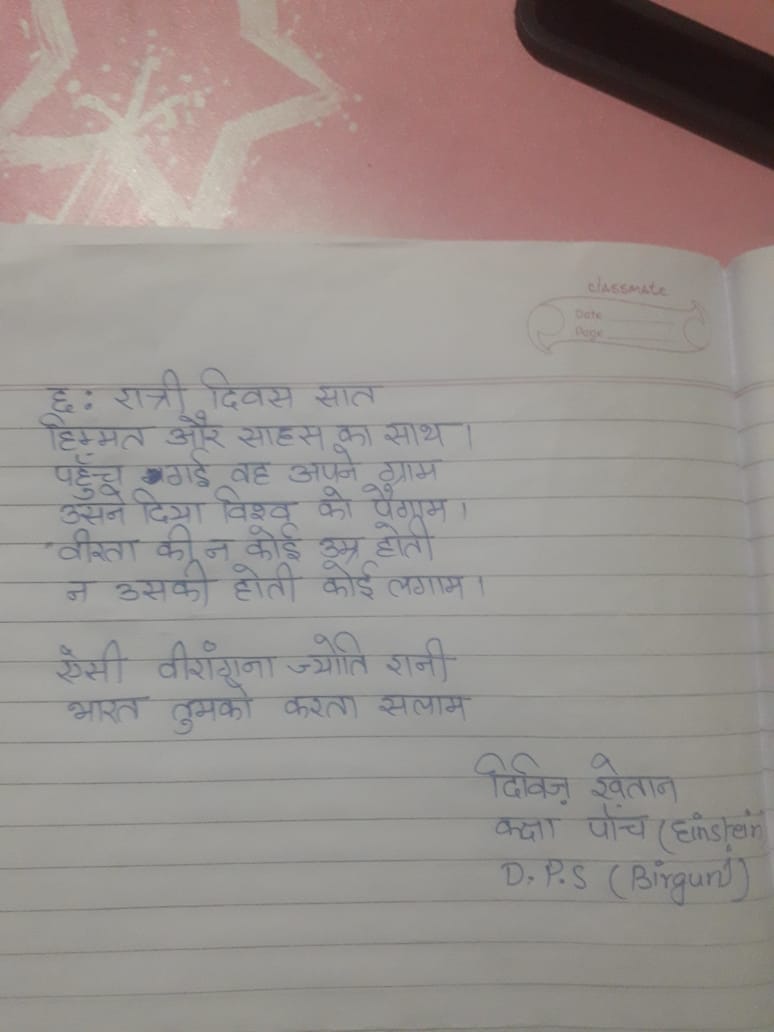 classmate
Date
Page
छः रात्री दिवस सात
हिम्मत और साहस का साथ।
पहुँच गई वह अपने ग्राम
उसने दिया विश्व को पैगाम।
वीरता की न कोई उम्र होती
न उसकी होती कोई लगाम।
ऐसी वीरांगना ज्योति रानी
भारत तुमको करता सलाम
दिविज़ खेतान
कक्षा पाँच (Einstein
D.P.S (Birgunj)